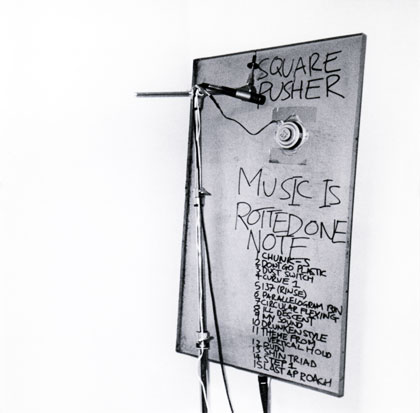 SQUARE
PUSHER
MUSIC IS
ROTTED ONE
NOTE
1 CHUNK-S
2 DON'T GO PLASTIC
3 DUST SWITCH
4 CURVE 1
5 137 (RINSE)
6 PARALLELOGRAM BIN
7 CIRCULAR FLEXING
8 ILL DESCENT
9 MY SOUND
10 DRUNKEN STYLE
11 THEME FROM
VERTICAL HOLD
12 RUIN
13 SHIN TRIAD
14 STEP 1
15 LAST APROACH